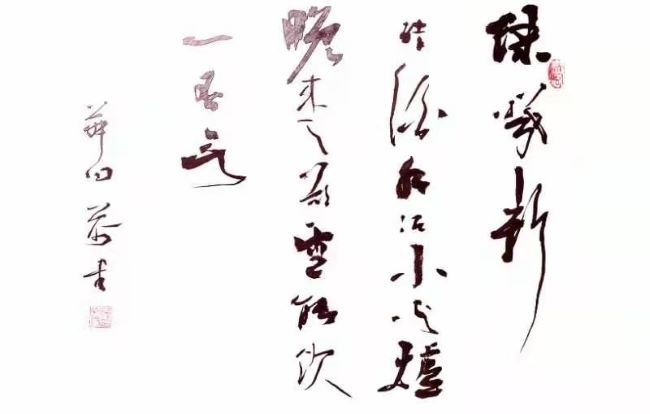 綠蟻新
醅酒紅泥小火爐
晚来天欲雪能饮
一杯无